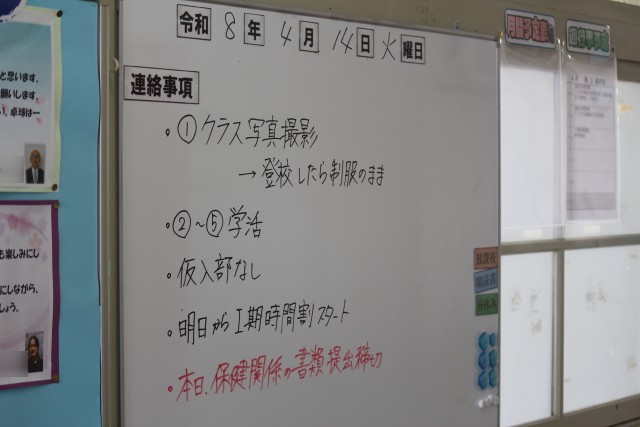 令和 8年 4月 14日 火曜日
連絡事項
・①クラス写真撮影
→登校したら制服のまま
・②〜⑤学活
・仮入部なし
・明日からⅠ期時間割スタート
・本日、保健関係の書類提出締切
と思います。
願いします。
い、卓球は一
も楽しみにし
にしながら、
しょう。
月間予定表